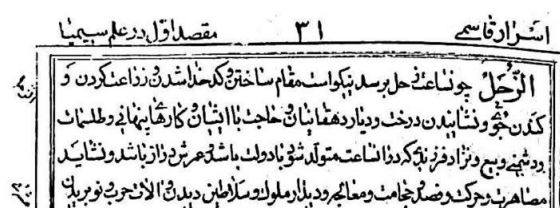 اسرار قاسمی ۳۱ مقصد اول در علم سیمیا
الزحل چون ساعت زحل برسد نیکو است مقام ساختن و کدخدا شدن و زراعت کردن و
کندن جوی و نشانیدن درخت و دیدار دهقانان و حاجت با ایشان و کارهای پنهانی و طلسمات
و دشمنی و بیع و نزاد فرزندی که در آن ساعت متولد شود با دولت باشد عمرش دراز باشد و نشاید
مصاهرت و حرکت و فصد و حجامت و معالجه و دیدار ملوک و سلاطین دیدن آلات حرب و نو بریدن